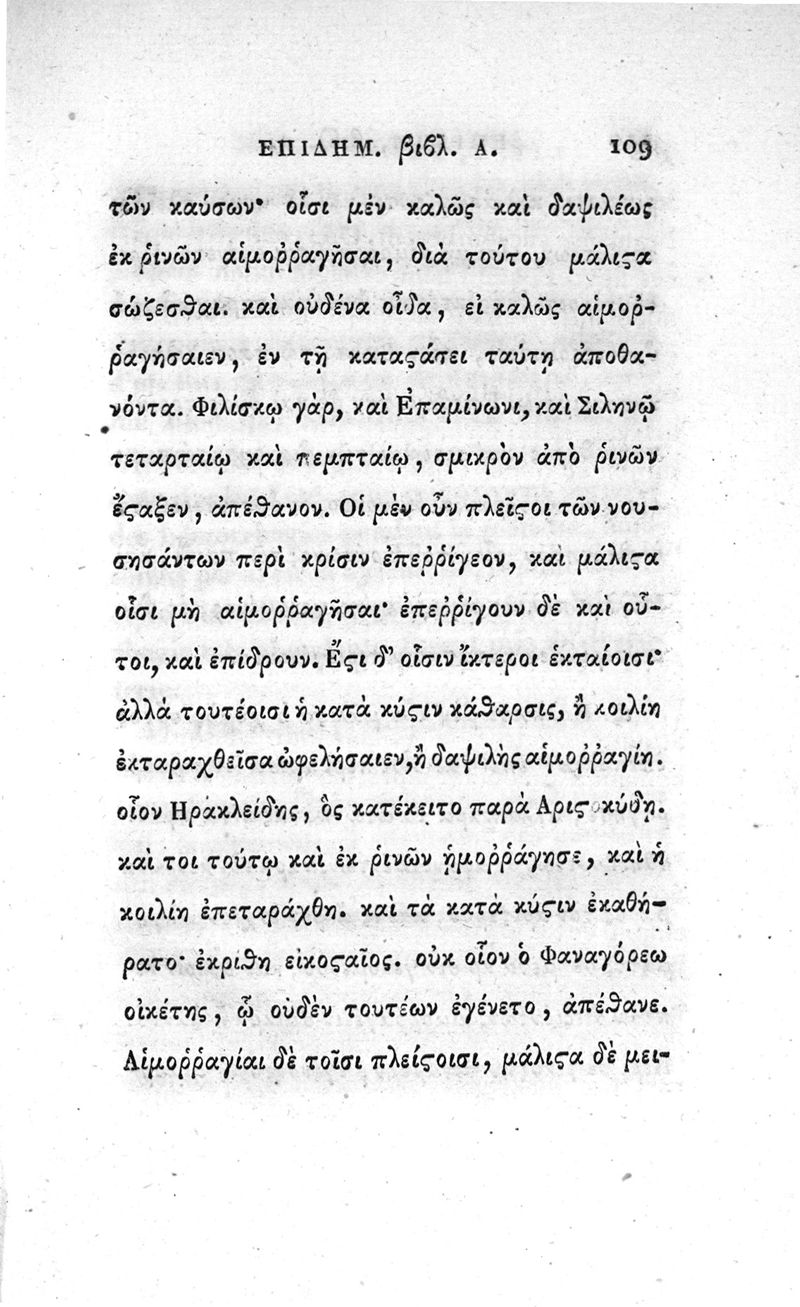 ΕΠΙΔΗΜ. βιϐλ. Α. 109
τῶν καύσων· οἷσι μὲν καλῶς καὶ δαψιλέως
ἐκ ῥινῶν αἱμοῤῥαγῆσαι, διὰ τούτου μάλιϛα
σώζεσθαι. καὶ οὐδένα οἶδα, εἰ καλῶς αἱμοῤ-
ῥαγήσαιεν, ἐν τῇ καταϛάσει ταύτῃ ἀποθα-
νόντα. Φιλίσκῳ γὰρ, καὶ Ἐπαμίνωνι, καὶ Σιληνῷ
τεταρταίῳ καὶ πεμπταίῳ, σμικρὸν ἀπὸ ῥινῶν
ἔϛαξεν, ἀπέθανον. Οἱ μὲν οὖν πλεῖϛοι τῶν νου-
σησάντων περὶ κρίσιν ἐπεῤῥίγεον, καὶ μάλιϛα
οἷσι μὴ αἱμοῤῥαγῆσαι· ἐπεῤῥίγουν δὲ καὶ οὗ-
τοι, καὶ ἐπίδρουν. Ἔϛι δ’ οἷσιν ἴκτεροι ἑκταίοισι·
ἀλλὰ τουτέοισι ἡ κατὰ κύϛιν κάθαρσις, ἢ κοιλίη
ἐκταραχθεῖσα ὠφελήσαιεν, ἢ δαψιλὴς αἱμοῤῥαγίη.
οἷον Ηρακλείδης, ὃς κατέκειτο παρὰ Αριϛοκύδῃ.
καὶ τοι τούτῳ καὶ ἐκ ῥινῶν ᾑμοῤῥάγησε, καὶ ἡ
κοιλίη ἐπεταράχθη. καὶ τὰ κατὰ κύϛιν ἐκαθή-
ρατο· ἐκρίθη εἰκοϛαῖος. οὐκ οἷον ὁ Φαναγόρεω
οἰκέτης, ᾧ οὐδὲν τουτέων ἐγένετο, ἀπέθανε.
Αἱμοῤῥαγίαι δὲ τοῖσι πλείϛοισι, μάλιϛα δὲ μει-